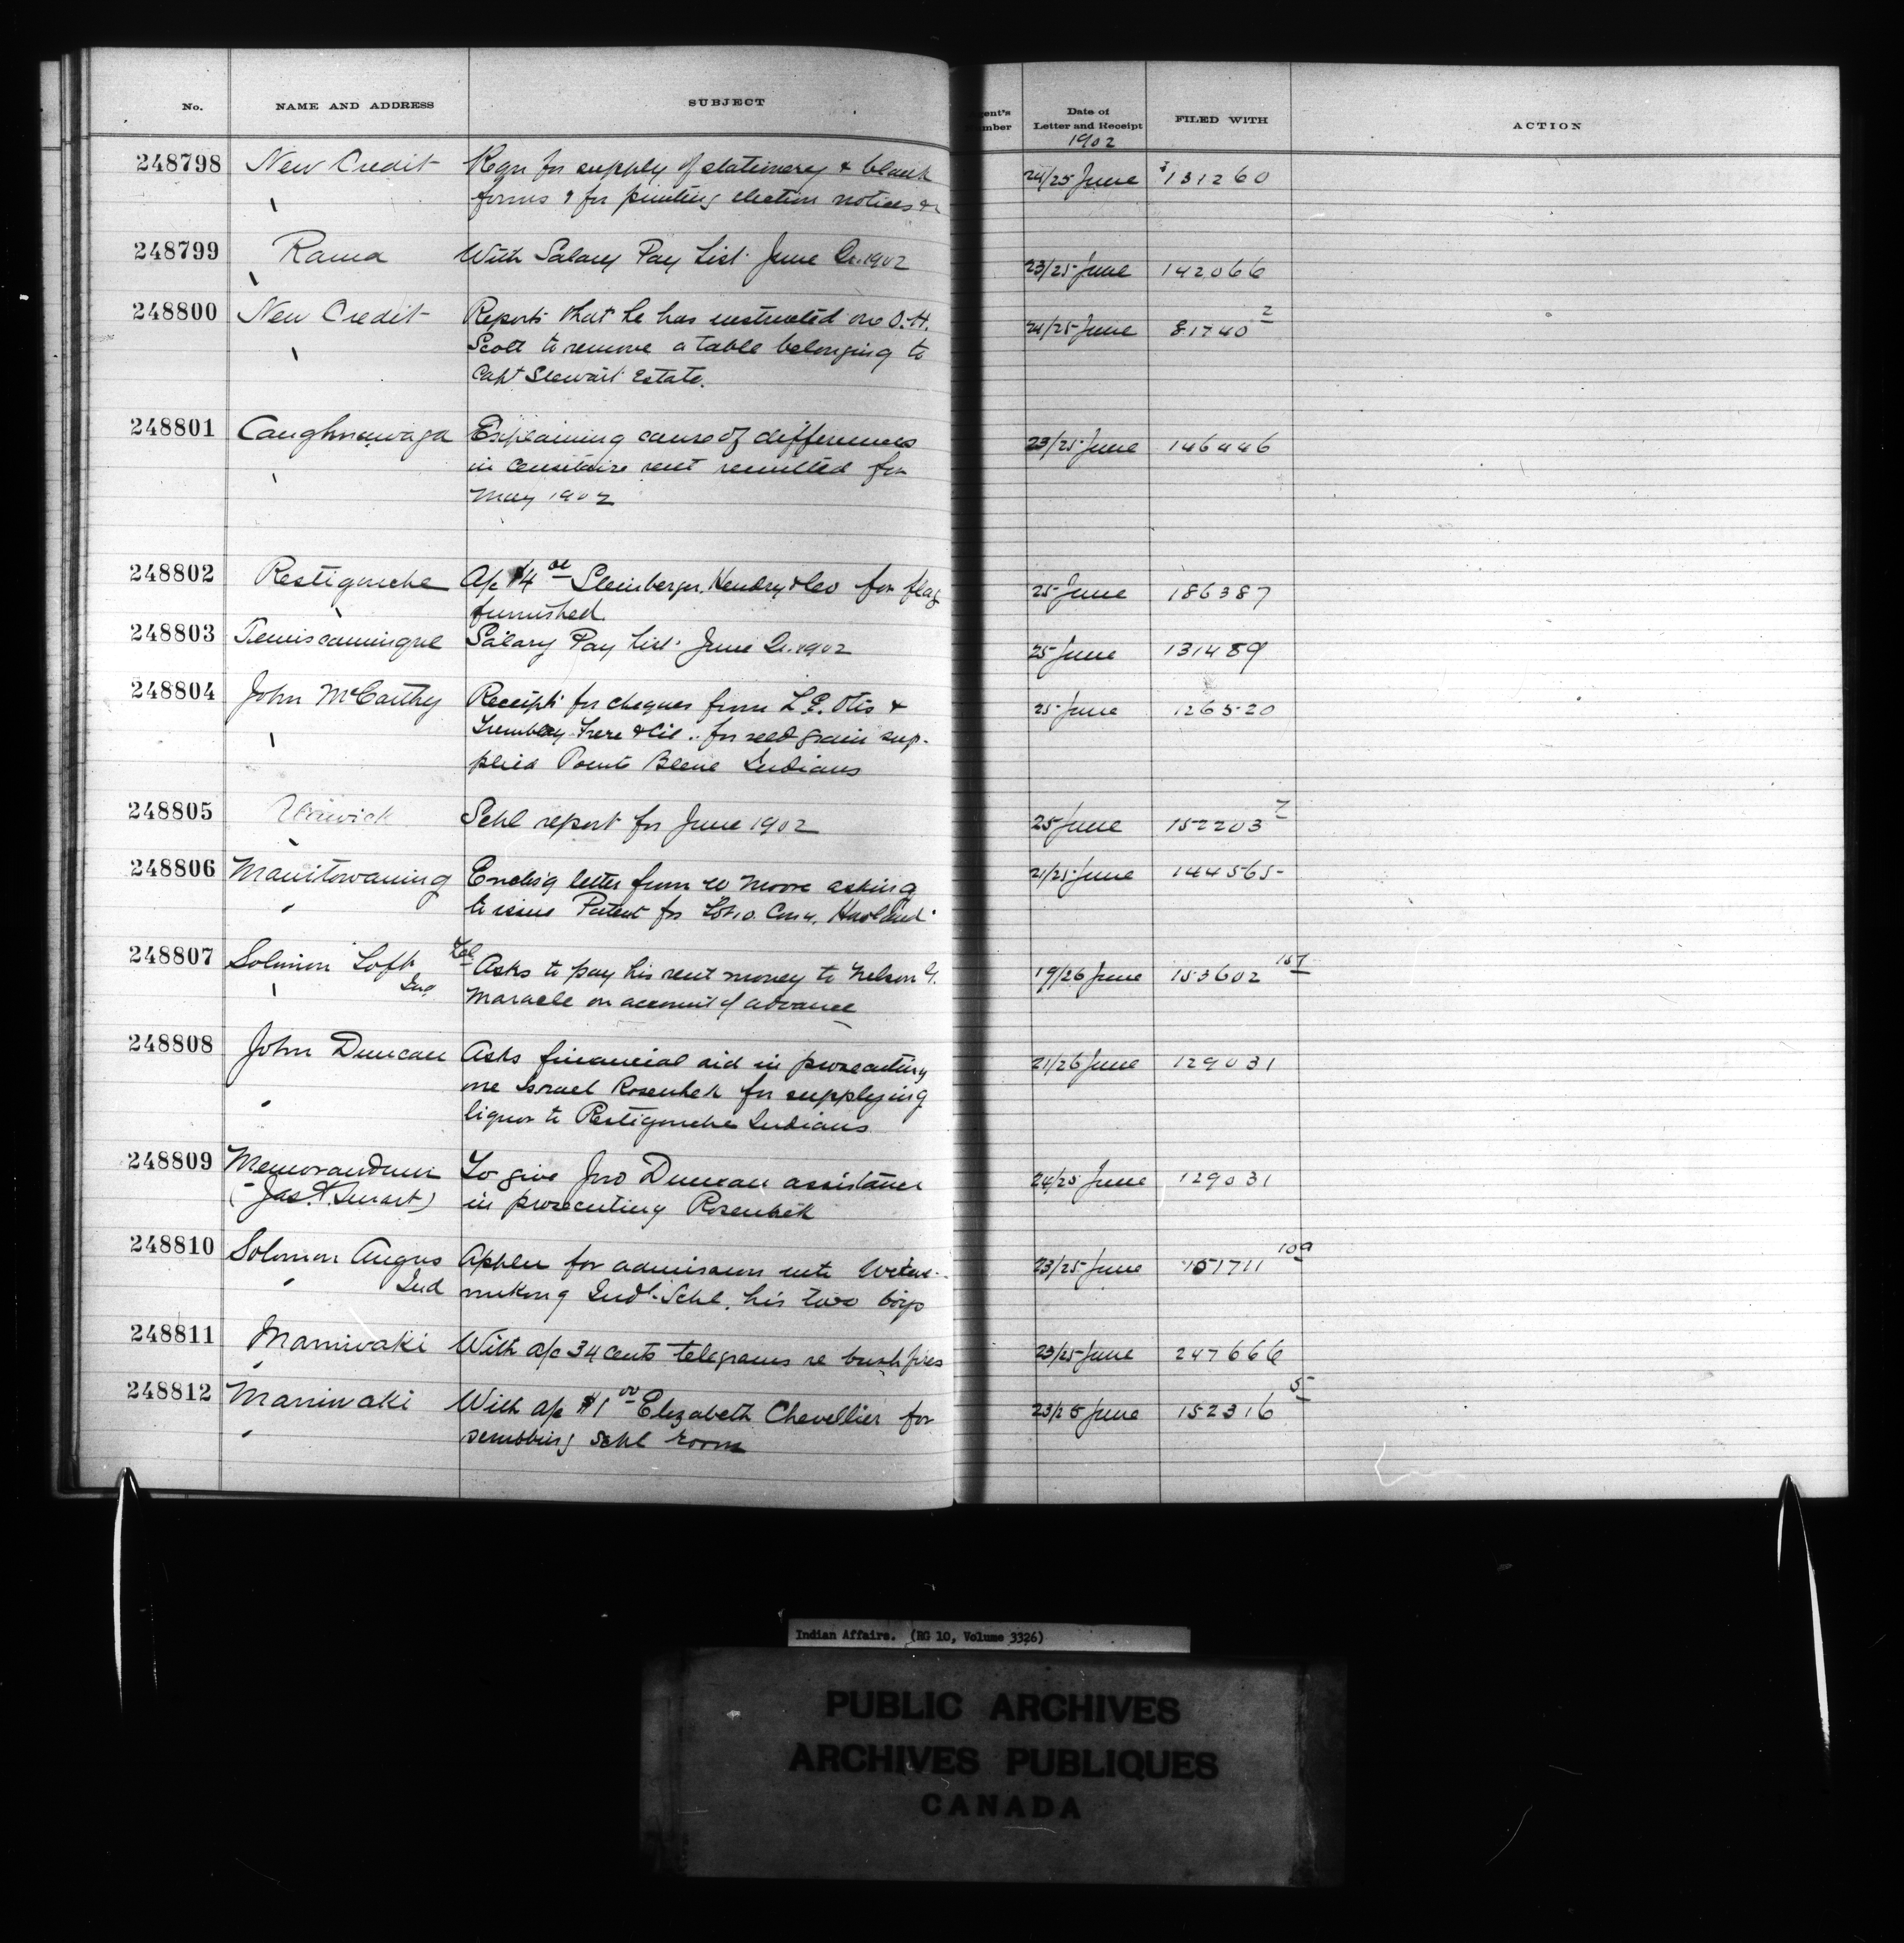 No. NAME AND ADDRESS SUBJECT
gent's mber Date of Letter and Receipt FILED WITH ACTION
1902
248798 New Credit Reqn for supply of stationery & blank 24/25 June 131260
forms & for printing election notices &c
248799 Rama With Salary Pay List June Qr. 1902 23/25 June 142066
248800 New Credit Reports that he has instructed one O.H. 24/25 June 81740 2
Scott to remove a table belonging to
Capt Stewart Estate.
248801 Caughnawaga Explaining cause of differences 23/25 June 146446
in censitaire rent remitted for
May 1902
248802 Restigouche A/c $4 Hendry & Co for flag 25 June 186387
furnished
248803 Temiscamingue Salary Pay List June Qr. 1902 25 June 131489
248804 John McCarthy Receipts for cheques from L.E. Otis & 25 June 126520
Tremblay Frere & Cie .. for seed grain sup-
plied Pointe Bleue Indians
248805 Schl report for June 1902 25 June 152203 7
248806 Manitowaning Enclsg letter from W Moore asking 21/25 June 144565
to issue Patent for Lot 10. Con 4. Howland
248807 Solomon Loft Asks to pay his rent money to Nelson G. 19/26 June 153602 157
Ind Maracle on account of advance
248808 John Duncan Asks financial aid in prosecuting 21/26 June 129031
one Israel Rosenhek for supplying
liquor to Restigouche Indians
248809 Memorandum To give Jno Duncan assistance 24/25 June 129031
(Jas. A. Smart) in prosecuting Rosenhek
248810 Solomon Angus Appln for admission into Wikwe- 23/25 June 151711 109
Ind mikong Indl. Schl. his two boys
248811 Maniwaki With a/c 34 cents telegrams re bush fires 23/25 June 247666
248812 Maniwaki With a/c $1 00 Elizabeth Chevellier for 23/25 June 152316 5
scrubbing schl room
Indian Affairs. (RG 10, Volume 3326)
PUBLIC ARCHIVES
ARCHIVES PUBLIQUES
CANADA